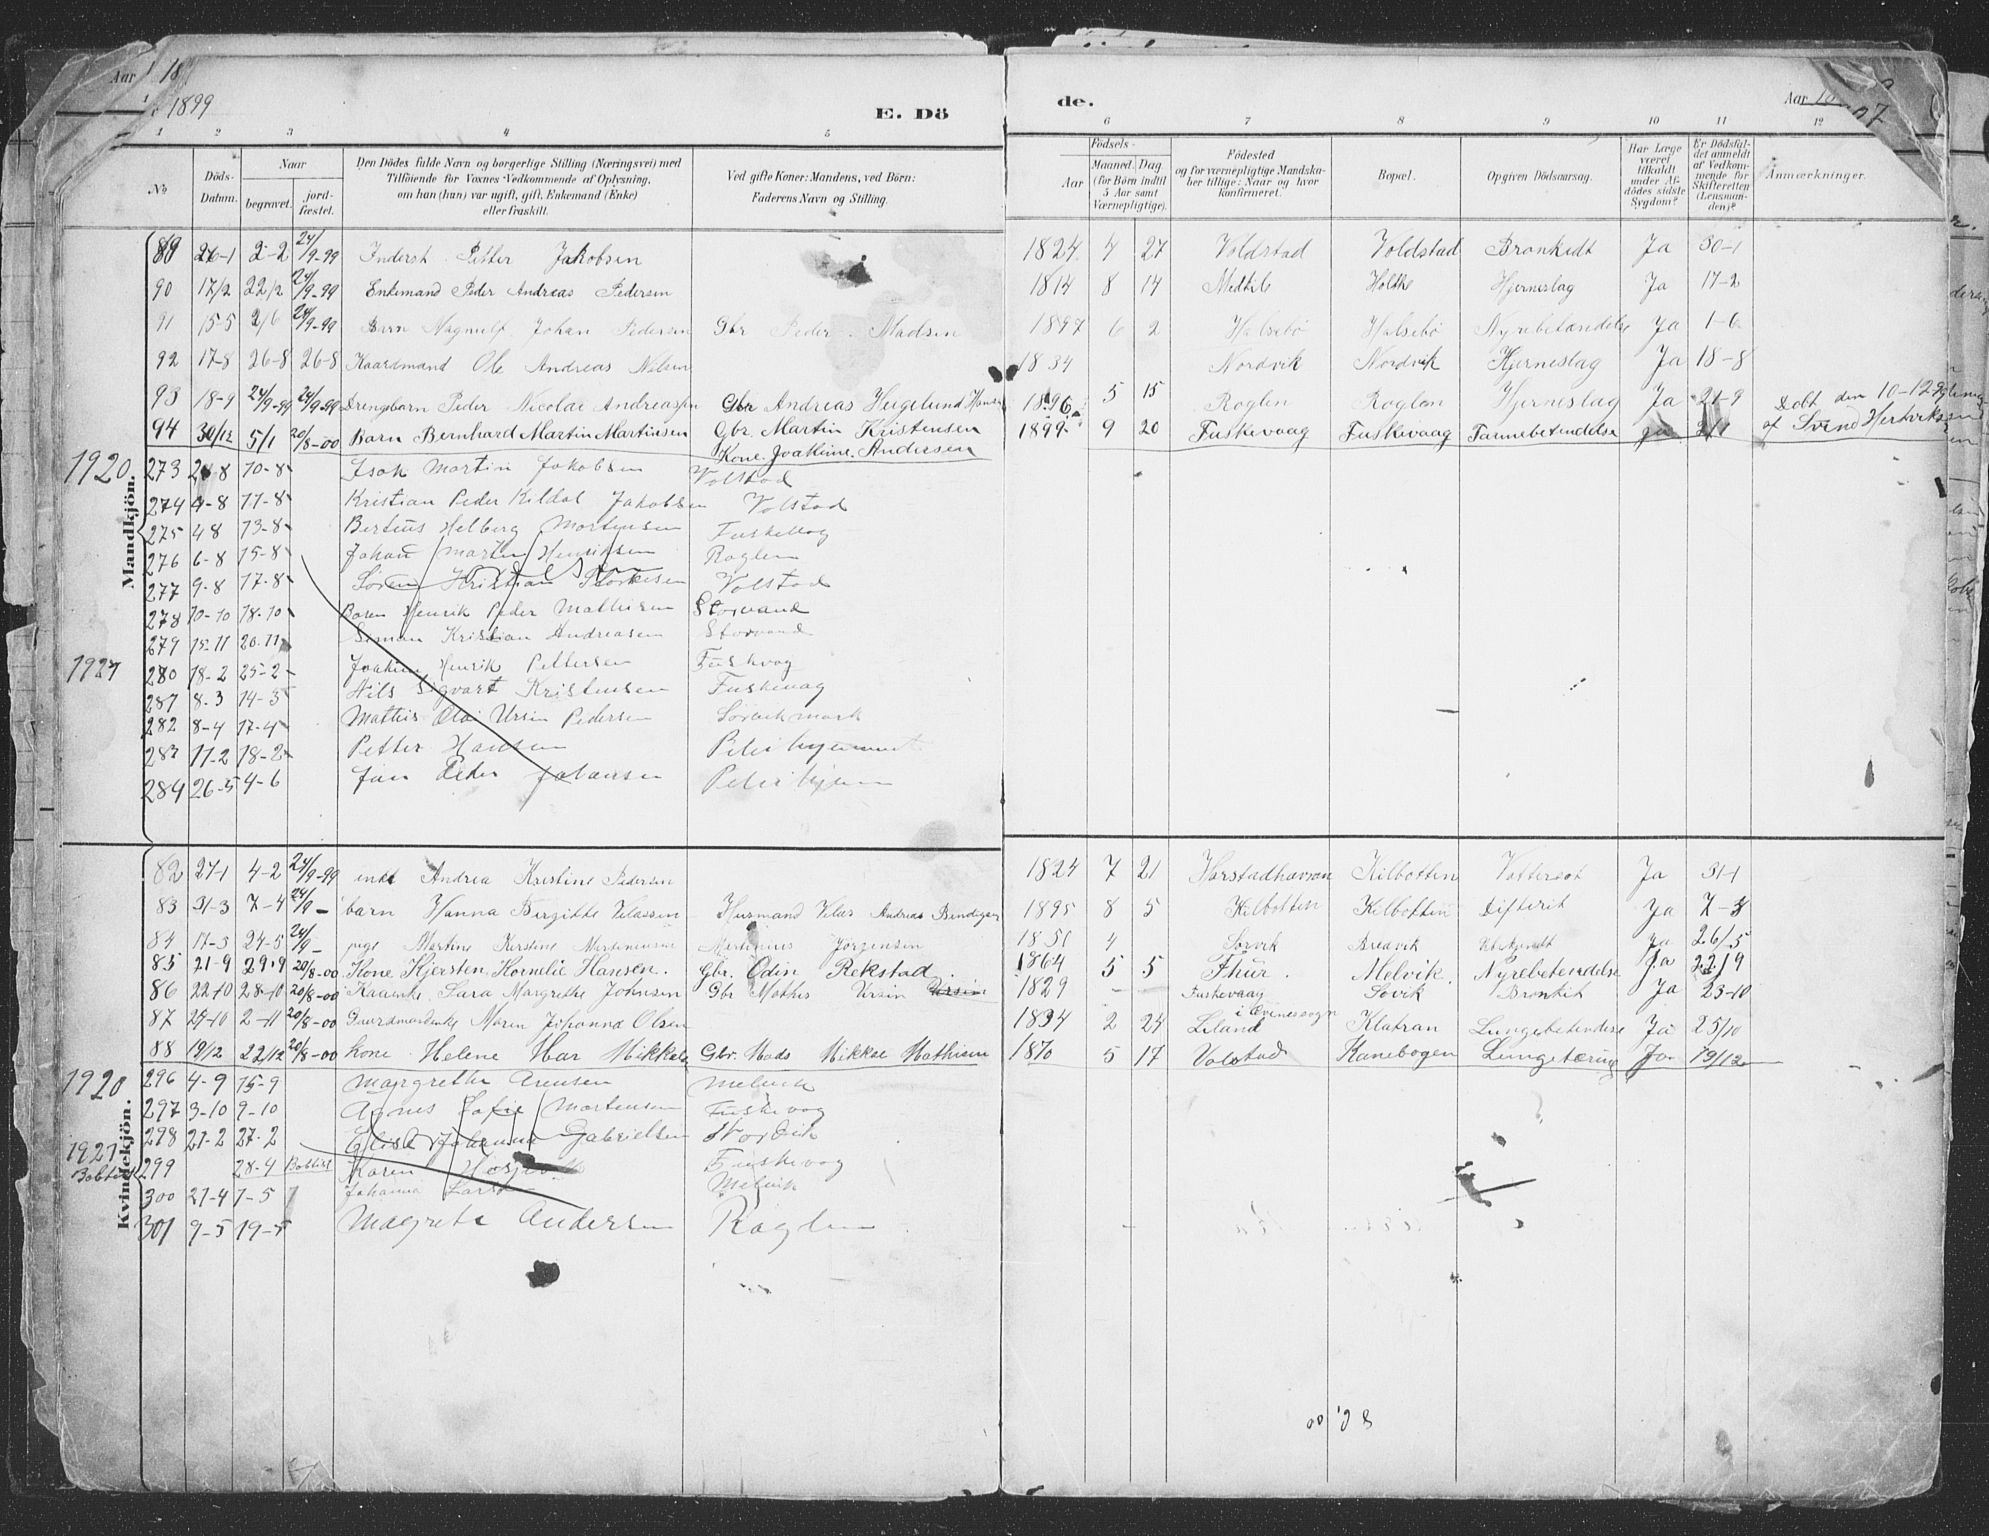 Aar 18
1899
E. Dö
de.
Aar 18
1 2 3 4 5 6 7 8 9 10 11 12
No
Döds-Datum.
Naar
begravet.
jord-fæstet.
Den Dödes fulde Navn og borgerlige Stilling (Næringsvei) med
Tilföiende for Voxnes Vedkommende af Oplysning,
om han (hun) var ugift, gift, Enkemand (Enke)
eller fraskilt.
Ved gifte Koner: Mandens, ved Börn:
Faderens Navn og Stilling.
Födsels-
Aar
Maaned. Dag
(for Börn indtil
5 Aar samt
Værnepligtige).
Födested
og for værnepligtige Mandska-
ber tillige: Naar og hvor
konfirmeret.
Bopæl.
Opgiven Dödsaarsag.
Har Læge
været
tilkaldt
under Af-
dödes sidste
Sygdom?
Er Dödsfal-
det anmeldt
af Vedkom-
mende for
Skifteretten
(Lensman-
den)?
Anmærkninger.
Mandkjön.
89 26-1 2-2 24/9-99 Inderst Petter Jakobsen 1824 4 27 Voldstad Voldstad Bronkidt Ja 30-1
90 17/2 22/2 24/9-99 Enkemand Peder Andreas Pedersen 1814 8 14 Medkile Holtke Hjerneslag Ja 17-2
91 15-5 2/6 24/9-99 Barn Magnulf Johan Pedersen Gbr Peder Madsen 1897 6 2 Halsebö Halsebö Nyrebetændelse Ja 1-6
92 17-8 26-8 26-8 Kaardmand Ole Andreas Nilsen 1834 Nordvik Nordvik Hjerneslag Ja 18-8
93 18-9 24/9-99 24/9-99 Drengebarn Peder Nicolai Andreassen Gbr Andreas Heigelund Hansen 1896 5 15 Roglen Roglen Hjerneslag Ja 21-9 Dobt den 10-12 96
af Svend Hertviksen
94 30/12 5/1 20/8-00 Barn Bernhard Martin Martinsen Gbr. Martin Kristensen 1899 9 20 Fuskevaag Fuskevaag Tarmebetendelse ja 2/1
Kone Joakime Andersen
1920 273 2-8 10-8 Isak Martin Jakobsen Volstad
274 4-8 11-8 Kristian Peder Kildal Jakobsen Volstad
275 48 13-8 Berteus Helberg Mortensen Fuskevog
276 6-8 15-8 Johan Martin Henriksen Roglen
277 9-8 17-8 Sören Kristian Volstad
278 10-10 18-10 Henrik Peder Mathisen Storvand
279 15-11 20.11 Simon Kristian Andreasen Storvand
1921 280 18-2 25-2 Joakim Henrik Pettersen Fuskvog
281 8-3 14-3 Nils Sigvart Kristensen Fuskevaag
282 8-4 17-4 Mathis Olai Ursin Pedersen Sörvikmark
283 11-2 18-2 Petter Hansen Pleiehjemmet
284 26-5 4-6 Jan Peder Johansen Pleiehjem
Kvindekjön.
82 27-1 4-2 24/9-99 enke Andrea Kristine Pedersen 1824 7 21 Harstadhavnen Kilbotten Vattersot Ja 31-1
83 31-3 7-4 24/9- barn Hanna Birgitte Velassen Husmand Velas Andreas Bendigsen 1895 8 5 Kilbotten Kilbotten Difterit Ja 7-3
84 17-5 24-5 24/9- pige Martine Kerstine Mortensen Jörgensen 1851 4 Sörvik Bredvik Ja 26/5
85 21-9 29.9 20/8-00 Kone Kjersten Kornelie Hansen. Gbr. Odin Rekstad. 1864 5 5 Thur. Melvik. Nyrebetendelse Ja 22/9
86 22/10 28-10 20/8-00 Kaarenke. Sara Margrethe Johnsen Gbr Mathis Ursin Ursin 1829 — — Fuskevaag Sovik Bronkit Ja 23-10
87 25-10 2-11 20/8-00 Gaardmandenke Maren Johanna Olsen 1834 2 24 Liland i Evinessogn Klatran Lungebetendelse Ja 25/10
88 19/12 22/12 20/8-00 kone Helene Mar Mikkels Gbr. Mads Mikkal Mathisen 1870 5 17 Volstad Kanebogen Lungetæring Ja 19/12
1920 296 4-9 15-9 Margrethe Arensen Melvik
297 3-10 9-10 Agnes Sofie Mortensen Fuskevog
298 21-2 27-2 Elise Johanna Gabrielsen Nordvik
1921 299 28-4 Karen Fuskevog
300 27-4 7-5 Johanna Lars Melvik
301 9-5 19-5 Magrete Andersen Roglen